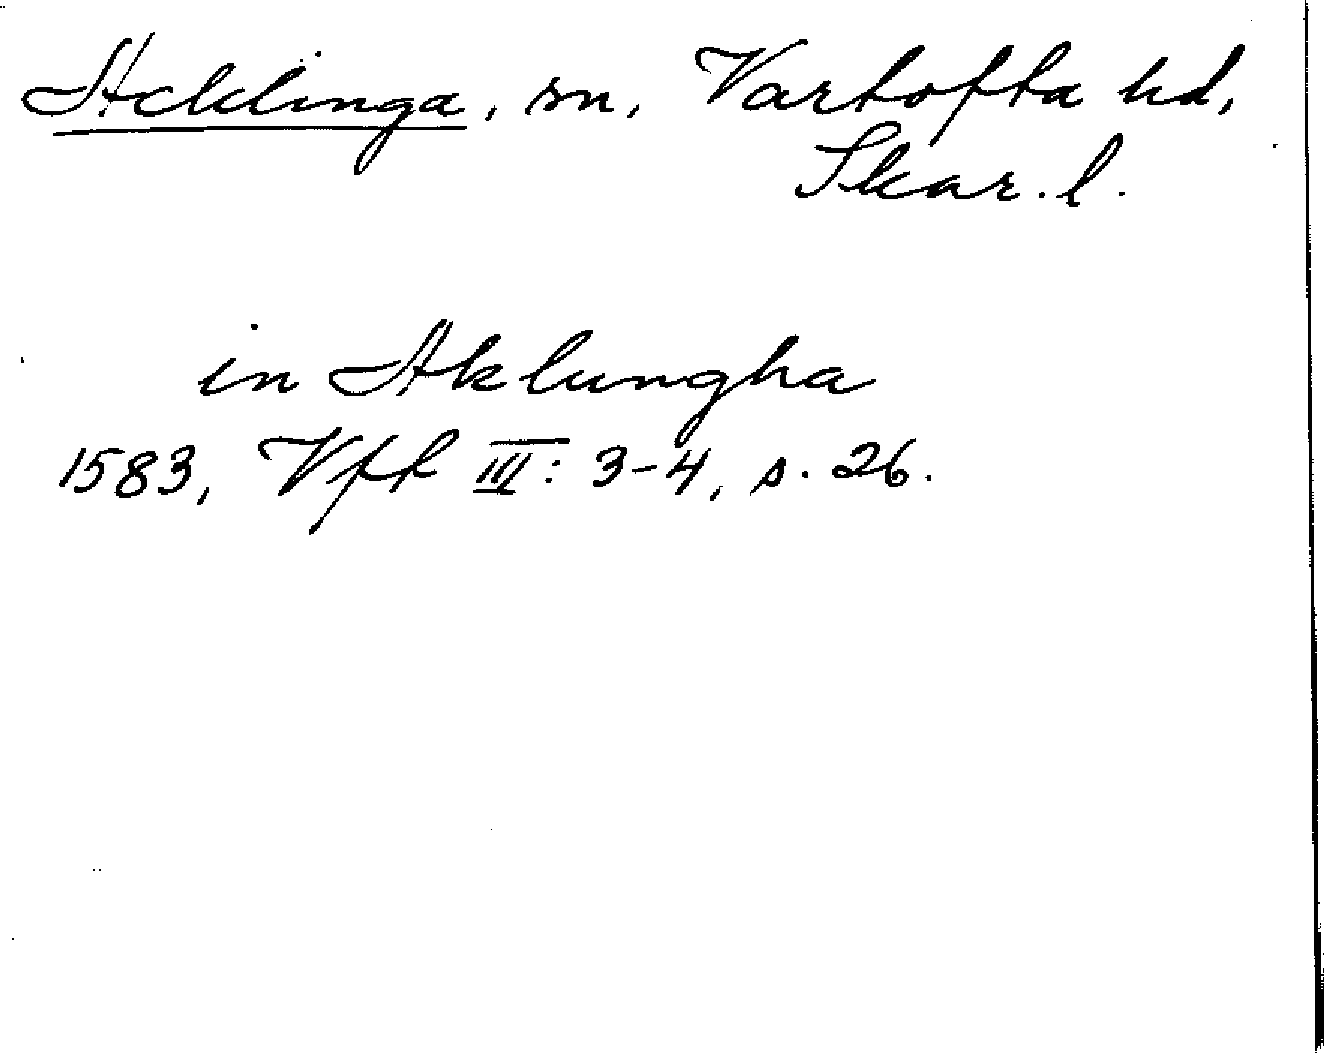 Acklinga, sn, Vartofta hd,
Skar. l.
in Aklungha
1583, Vft III: 3-4, s. 26.